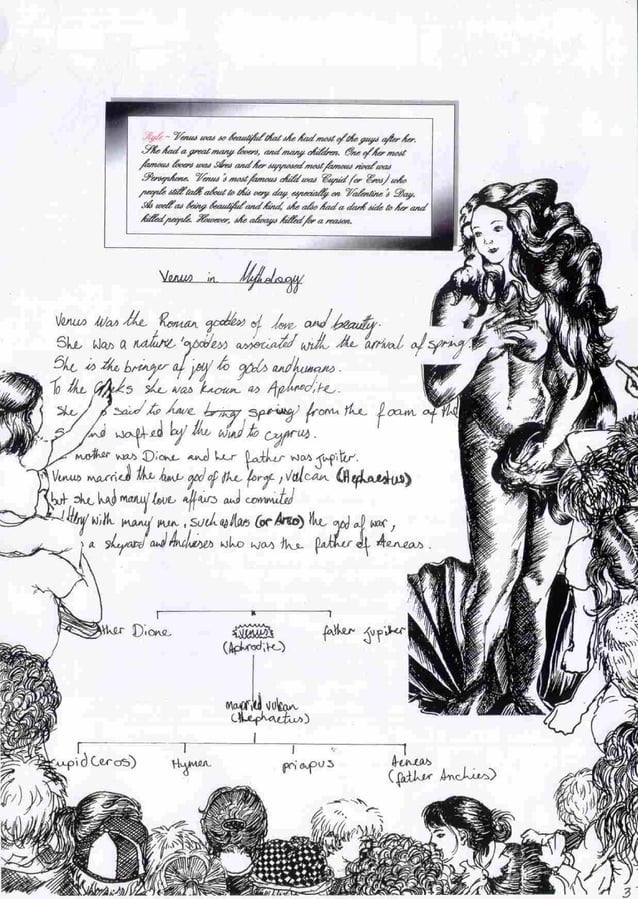 Kyle - Venus was so beautiful that she had most of the guys after her.
She had a great many lovers, and many children. One of her most
famous lovers was Ares and her supposed most famous rival was
Persephone. Venus's most famous child was Cupid (or Eros) who
people still talk about to this very day, especially on Valentine's Day.
As well as being beautiful and kind, she also had a dark side to her and
killed people. However, she always killed for a reason.
Venus in Mythology
Venus was the Roman goddess of love and beauty.
She was a nature goddess associated with the arrival of spring.
She is the bringer of joy to gods and humans.
To the Greeks she was known as Aphrodite.
She said to have spring from the foam of the
and wafted by the wind to Cyprus.
mother was Dione and her father was Jupiter.
Venus married the lame god of the forge, Vulcan (Hephaestus)
but she had many love affairs and commited
with many men, such as Mars (or Ares) the god of war,
a shepard and Anchieses who was the father of Aeneas.
ther Dione
Venus
father Jupiter
(Aphrodite)
married Vulcan
(Hephaetus)
cupid (eros)
Hymen
priapus
Aeneas
(father Anchies)
3